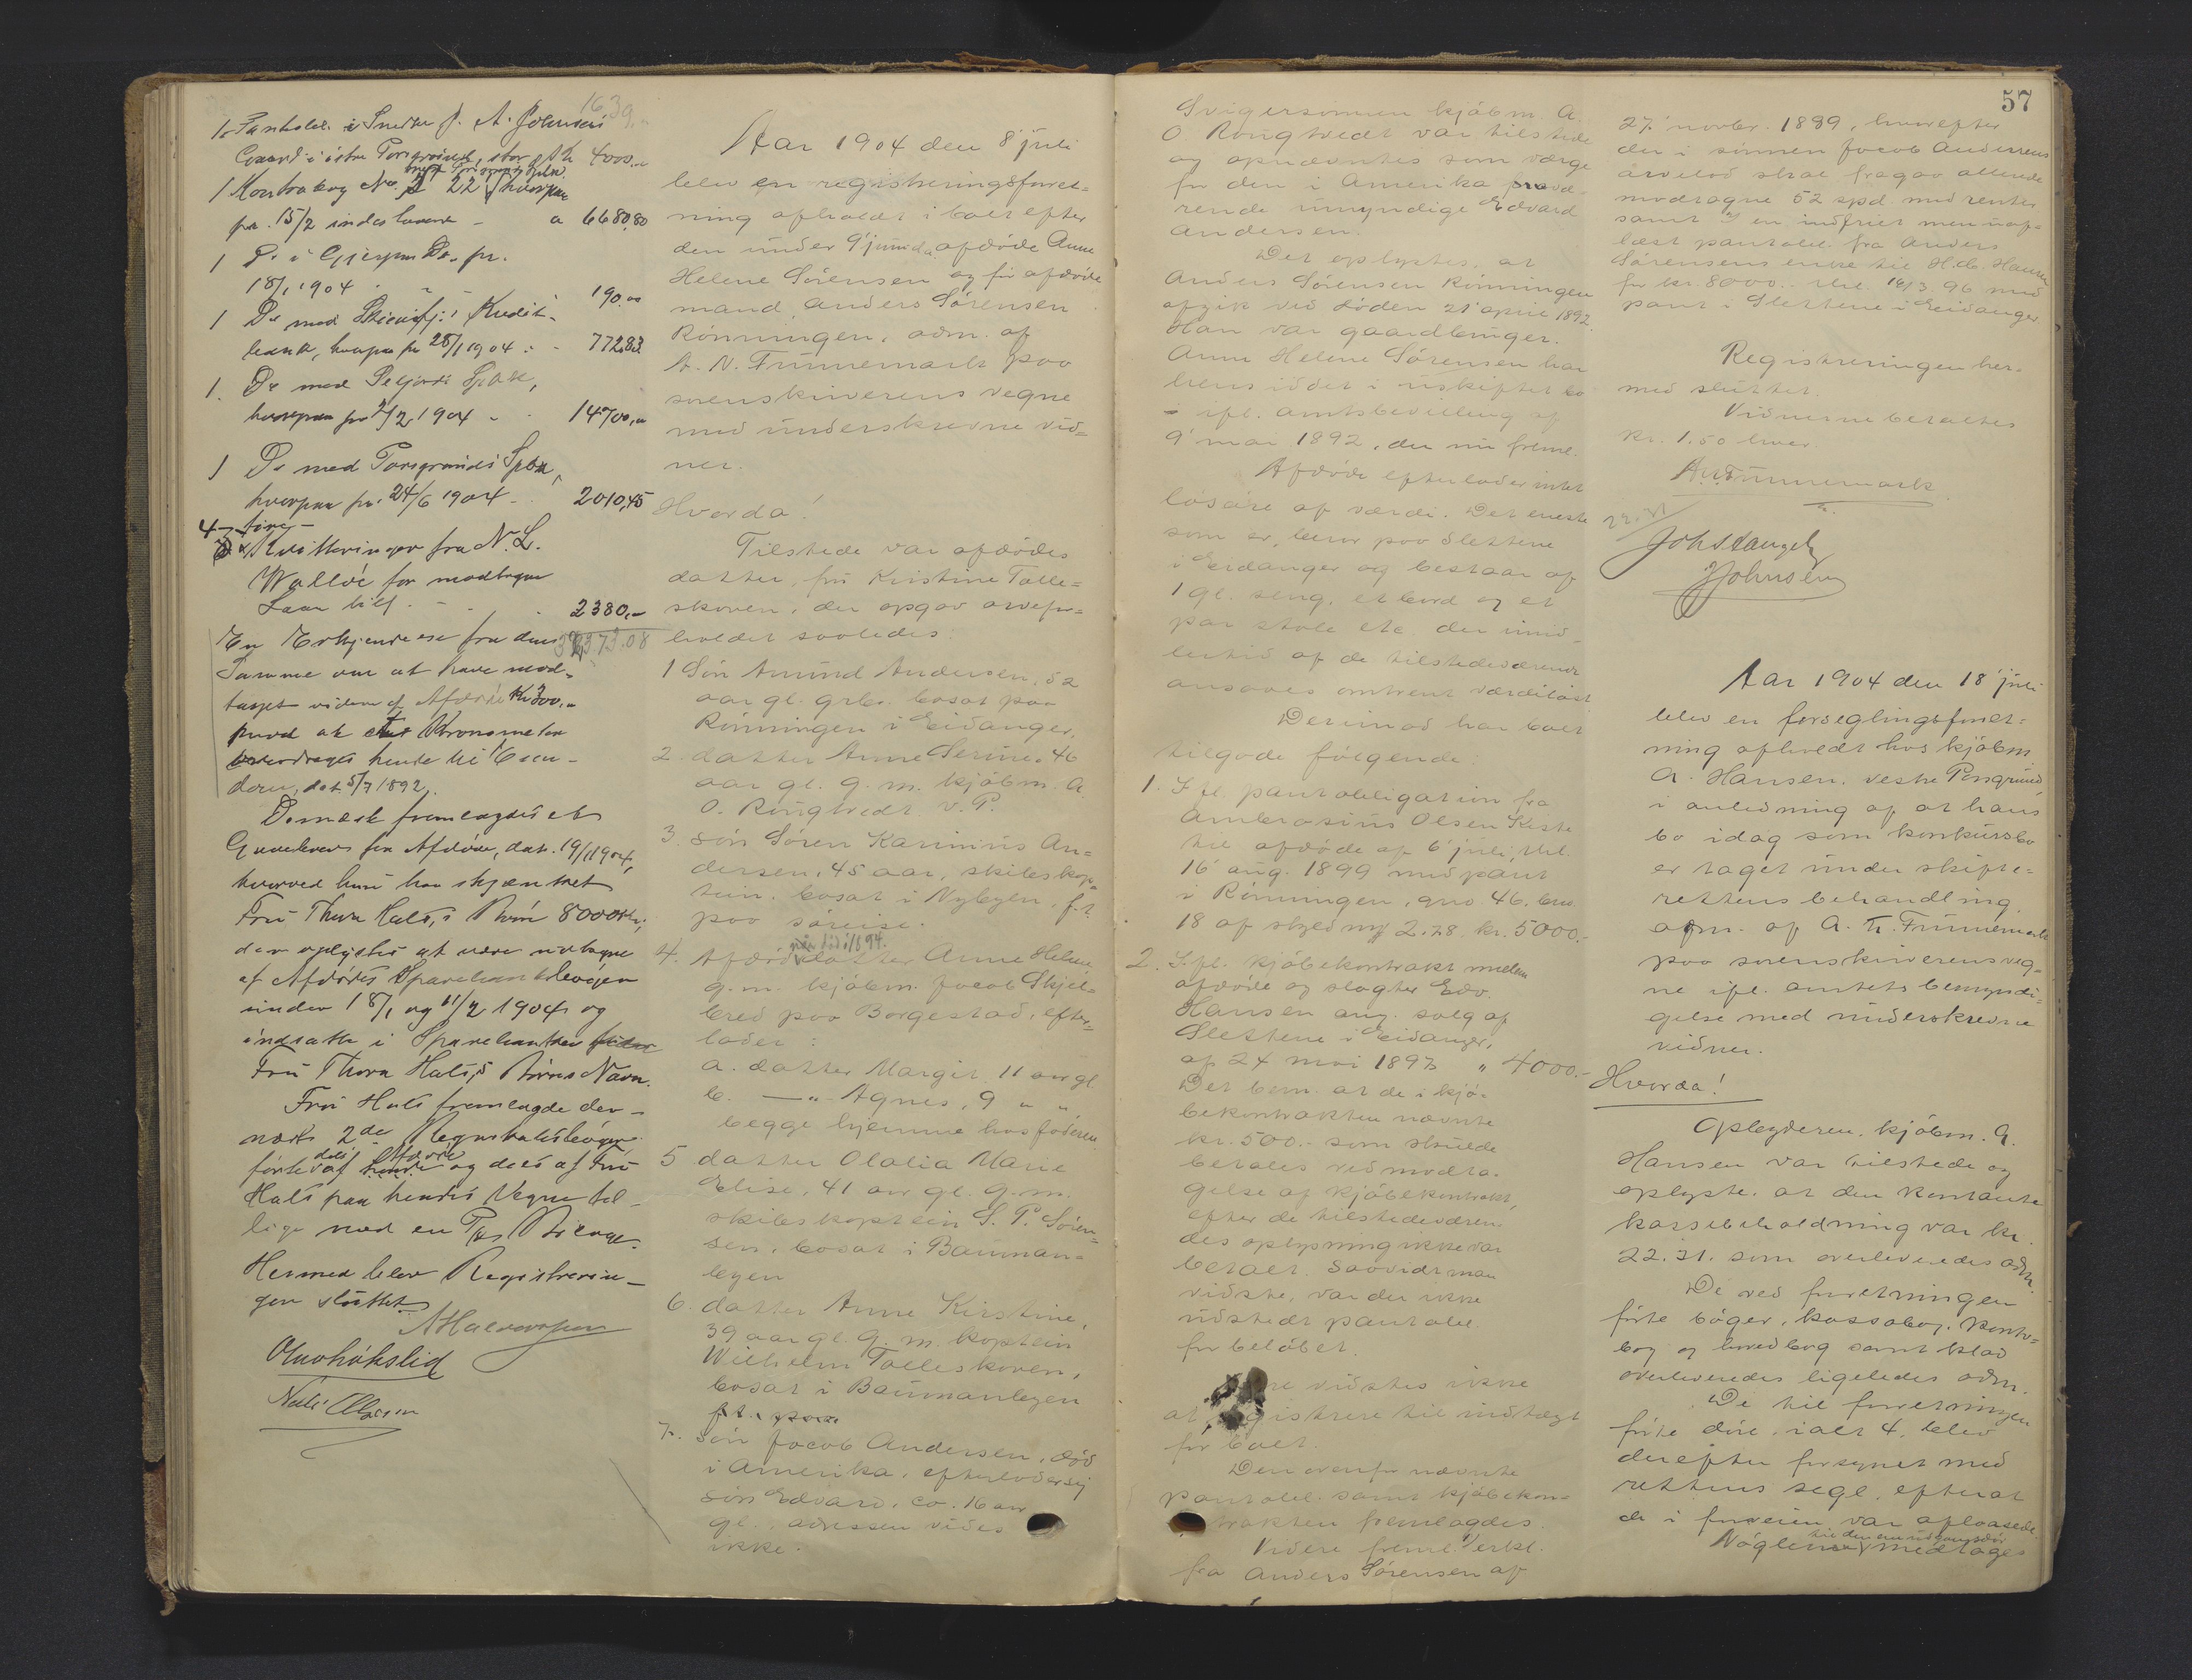 1639.
1 Pantobl. i Snedker J. A. Johnsens
Gaard i östre Porsgrund, stor Kr 4000,-
med Porsgrunds Spbk.
1 Kontrabog No. 22 hvorpaa
pr. 15/2 indestaaende - a 6680,80
1 Do i Gjerpen Do. pr.
18/1 1904 - - 190,00
1 Do med Skiensfj: s Kredit-
bank, hvorpaa pr 28/1 1904 : - 772,83
1. Do med Seljords Spbk,
hvorpaa pr 2/2 1904 - - 14700,-
1 Do med Porsgrunds Spbk,
hvorpaa pr. 24/6 1904 - 2010,45
4 - fire -
Kvitteringer fra N. L.
Walløe for modtagne
Laan till - - - 2380,-
En Erkjendelse fra den
Samme om at have mod-
taget videre af Afdøde Kr 300,-
mod at et Kronometer
overdrages hende til Eien-
dom, dat. 5/7 1892.
Dernæst fremlagdes et
Gavebrev fra Afdøde, dat. 19/1 1904,
hvorved hun har skjænket
Fru Thora Hals's Børn 8000 Kr,
der oplystes at være udtagne
af Afdødes Sparebankbøger
under 18/1 og 11/2 1904 og
indsatte i Sparebanken
Fru Thora Hals's Børns Navn.
Fru Hals fremlagde der-
næst 2de Regnskabsbøger
dels Afdøde
førte af og dels af Fru
Hals paa hendes Vegne til-
lige med en Pk Bilage.
Hermed blev Registrerin-
gen sluttet
A Halvorsen
Niels Olsen
Aar 1904 den 8' juli
blev en registreringsforret-
ning afholdt i boet efter
den under 9' juni d.a. afdöde Anne
Helene Sörensen og för afdöde
mand Anders Sörensen
Rönningen, adm. af
A. N. Fünnemark paa
sorenskriverens vegne
med underskrevne vid=
ner.
Hvorda!
Tilstede var afdödes
datter, fru Kristine Talle=
skoven, der opgav arvefor=
holdet saaledes:
1 Sön Amund Andersen, 52
aar gl. grbr. bosat paa
Rönningen i Eidanger,
2. datter Anne Serine, 46
aar gl. g. m. kjöbm. A.
O. Ringtvedt V. P.
3. sön Sören Karinius An=
dersen, 45 aar, skibskap=
tein, bosat i Nybyen, f. t.
paa söreise.
död i 1894.
4. Afdöd datter Anne Helene
g. m. kjöbm. Jacob Skjel=
bred paa Borgestad, efter=
lader:
a. datter Margit 11 aar gl
b. —"— Agnes, 9 " "
begge hjemme hos faderen
5 datter Olalia Marie
Elise, 41 aar gl. g. m.
skibskaptein S. P. Sören=
sen, bosat i Bauman=
byen
6. datter Anne Kirstine,
39 aar gl. g. m. kaptein
Wilhelm Talleskoven,
bosat i Baumanbyen
7. sön Jacob Andersen, död
i Amerika, efterlader sig
sön Edvard, ca. 16 aar
gl., adressen vides
ikke.
Svigersönnen kjöbm. A.
O. Ringtvedt var tilstede
og opnævntes som værge
for den i Amerika fravæ-
rende umyndige Edvard
Andersen.
Det oplystes, at
Anders Sörensen Rönningen
afgik ved döden 21' april 1892.
Han var gaardbruger.
Anne Helene Sörensen har
hensiddet i uskiftet bo
- ifl. amtsbevilling af
9' mai 1892, der nu freml.
Afdöde efterlader intet
lösöre af værdi. Det eneste
som er, beror paa Slettene
i Eidanger og bestaar af
1 gl. seng, et bord og et
par stole etc der imid-
lertid af de tilstedeværende
ansaaes omtrent værdilöst
Derimod har boet
tilgode fölgende:
1. Ifl. pantobligation fra
Ambrosius Olsen Kiste
til afdöde af 6' juli, thl.
16' aug. 1899 med pant
i Rönningen, gno 46, bno
18 af skyld my 2.28. kr. 5000.-
2. Ifl. kjöbekontrakt mellem
afdöde og slagter Edv.
Hansen ang. salg af
Slettene i Eidanger,
af 24 mai 1897 " 4000.-
Det bem. at de i kjö-
bekontrakten nævnte
kr. 500.- som skulde
betales ved modta-
gelse af kjöbekontrakt,
efter de tilstedeværen
des oplysning ikke var
betalt. Saavidt man
vidste, var der ikke
udstedt pantobl.
for belöbet.
re vidstes ikke
at registrere til indtægt
for boet.
Den ovenfor nævnte
pantobl. samt kjöbekon-
trakten fremlagdes.
Videre freml. 1/ erkl.
fra Anders Sörensen af
57
27' novbr. 1889, hvorefter
der i sönnen Jacob Andersens
arvelod skal fragaa allerede
modtagne 52 spd. med renter
samt 2/ en indfriet men uaf-
læst pantobl. fra Anders
Sörensens enke til H. C. Hansen
for kr. 8000.- thl. 18/3 96 med
pant i Slettene i Eidanger
Registreringen her-
med sluttet.
Vidnerne betaltes
kr. 1,50 hver.
A. N. Fünnemark
Joh Stangeby
J Johnsen
Aar 1904 den 18' juli
blev en forseglingsforret-
ning afholdt hos kjöbm.
A. Hansen, vestre Porsgrund,
i anledning af at hans
bo idag som konkursbo
er taget under skifte-
rettens behandling,
adm. af A. N. Fünnemark
paa sorenskriverens veg-
ne ifl. amtets bemyndi-
gelse med underskrevne
vidner.
Hvorda!
Opbyderen, kjöbm. A.
Hansen var tilstede og
oplyste, at den kontante
kassebeholdning var kr.
22.31. som overleveredes adm.
De ved forretningen
förte böger, kassabog, konto-
bog og hovedbog samt klad
overleveredes ligeledes adm.
De til forretningen
förte döre, ialt 4, blev
derefter forsynet med
rettens segl, efterat
de i forveien var aflaasede.
til den ene udgangsdör
Nöglerne medtoges